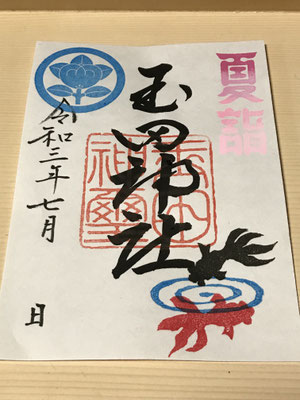 夏詣
玉田神社
令和三年七月 日